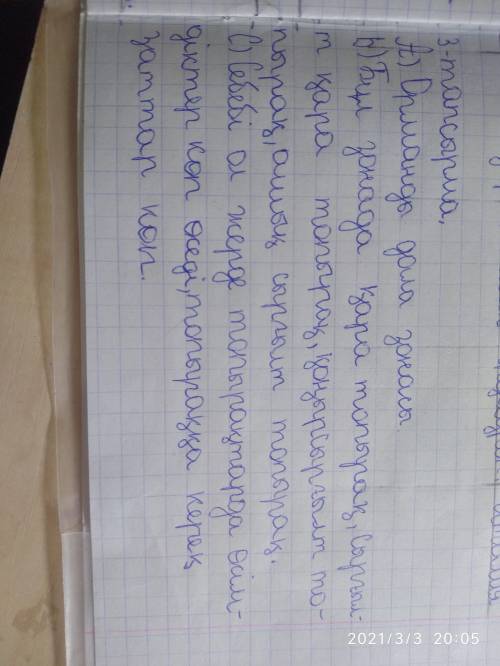 3-тапсырма,
A) Орманды дала зонасы.
B) Бұл зонада қара топырақ, сарғыл-
т қара топырақ, қоңырсарғылт то-
пырақ, ашық сарғылт топырақ.
C) Себебі ол жерде топырақтарда өсім-
діктер көп өседі, топыраққа керек
заттар көп.
2021/3/3 20:05